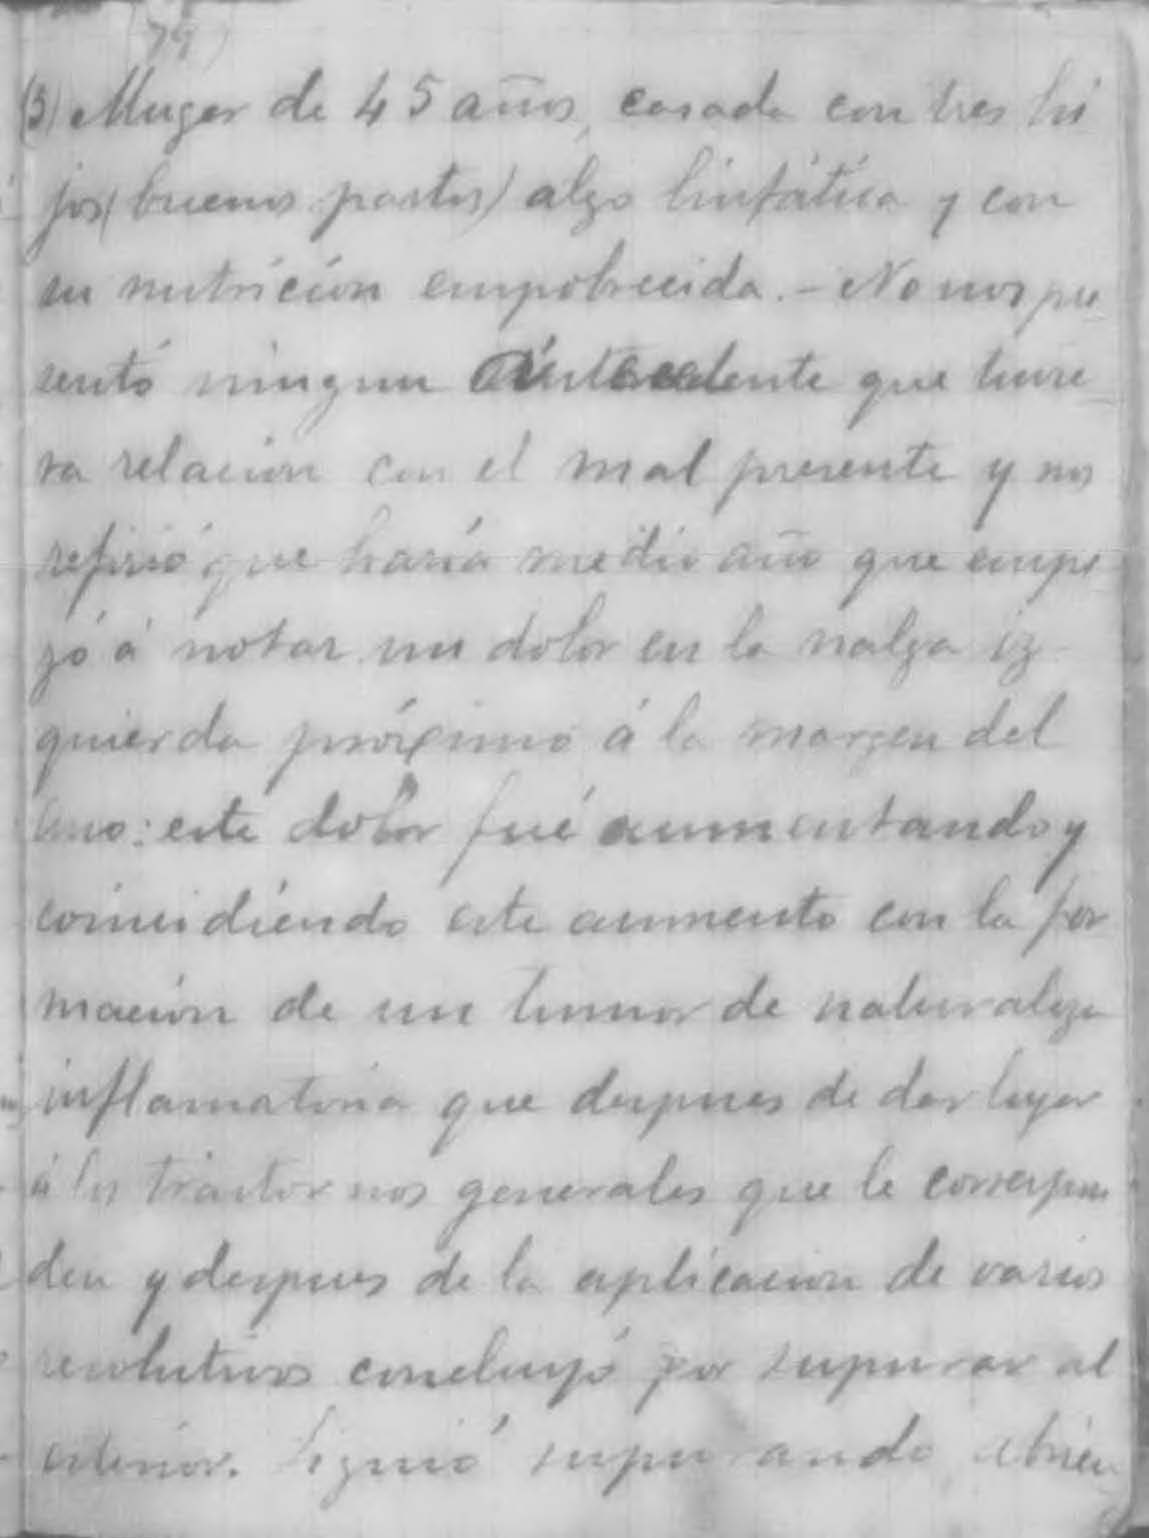 (3) Muger de 45 años, casada con tres hi
jos (buenos partos) algo linfática y con
su nutrición empobrecida. - No nos pre
sentó ningun antecedente que tuvie
ra relacion con el mal presente y nos
refirió que haría medio año que empe
zó á notar un dolor en la nalga iz
quierda próximo á la margen del
ano: este dolor fué aumentando y
coincidiendo este aumento con la for
mación de un tumor de naturaleza
inflamatoria que despues de dar lugar
á los trastornos generales que le correspon
den y despues de la aplicacion de varios
resolutivos concluyó por supurar al
exterior. Siguió supurando abrien